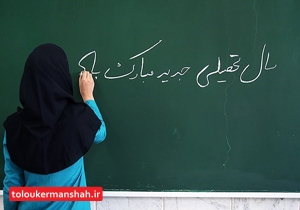 سال تحصیلی جدید مبارک با
toloukermanshah.ir